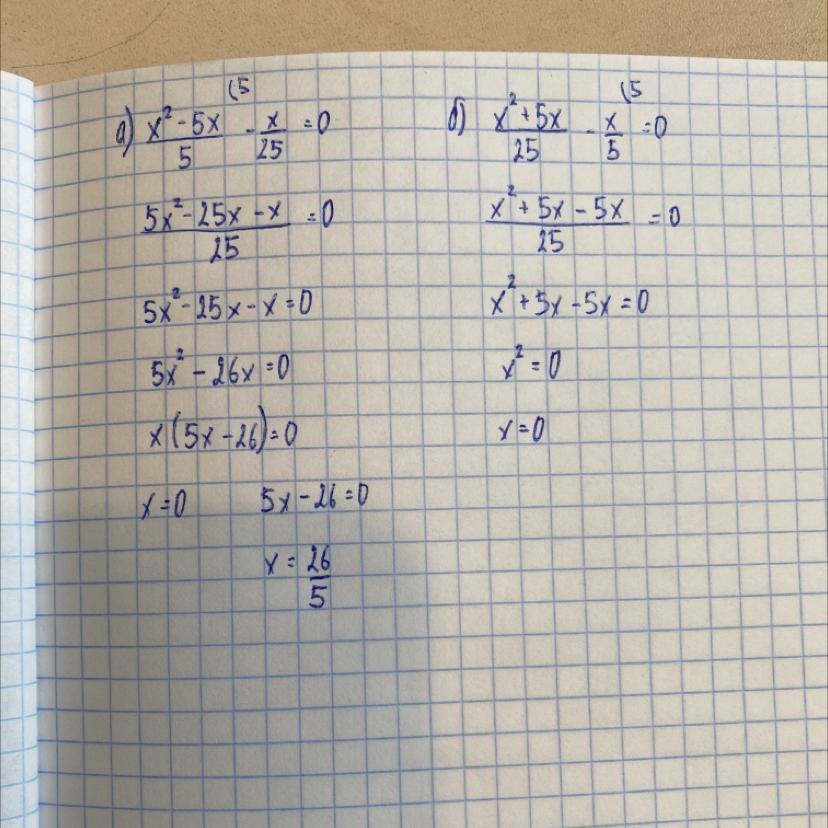 а) (x² - 5x)/5 (5 - x/25 = 0
(5x² - 25x - x)/25 = 0
5x² - 25x - x = 0
5x² - 26x = 0
x(5x - 26) = 0
x = 0 5x - 26 = 0
x = 26/5
б) (x² + 5x)/25 - x/5 (5 = 0
(x² + 5x - 5x)/25 = 0
x² + 5x - 5x = 0
x² = 0
x = 0